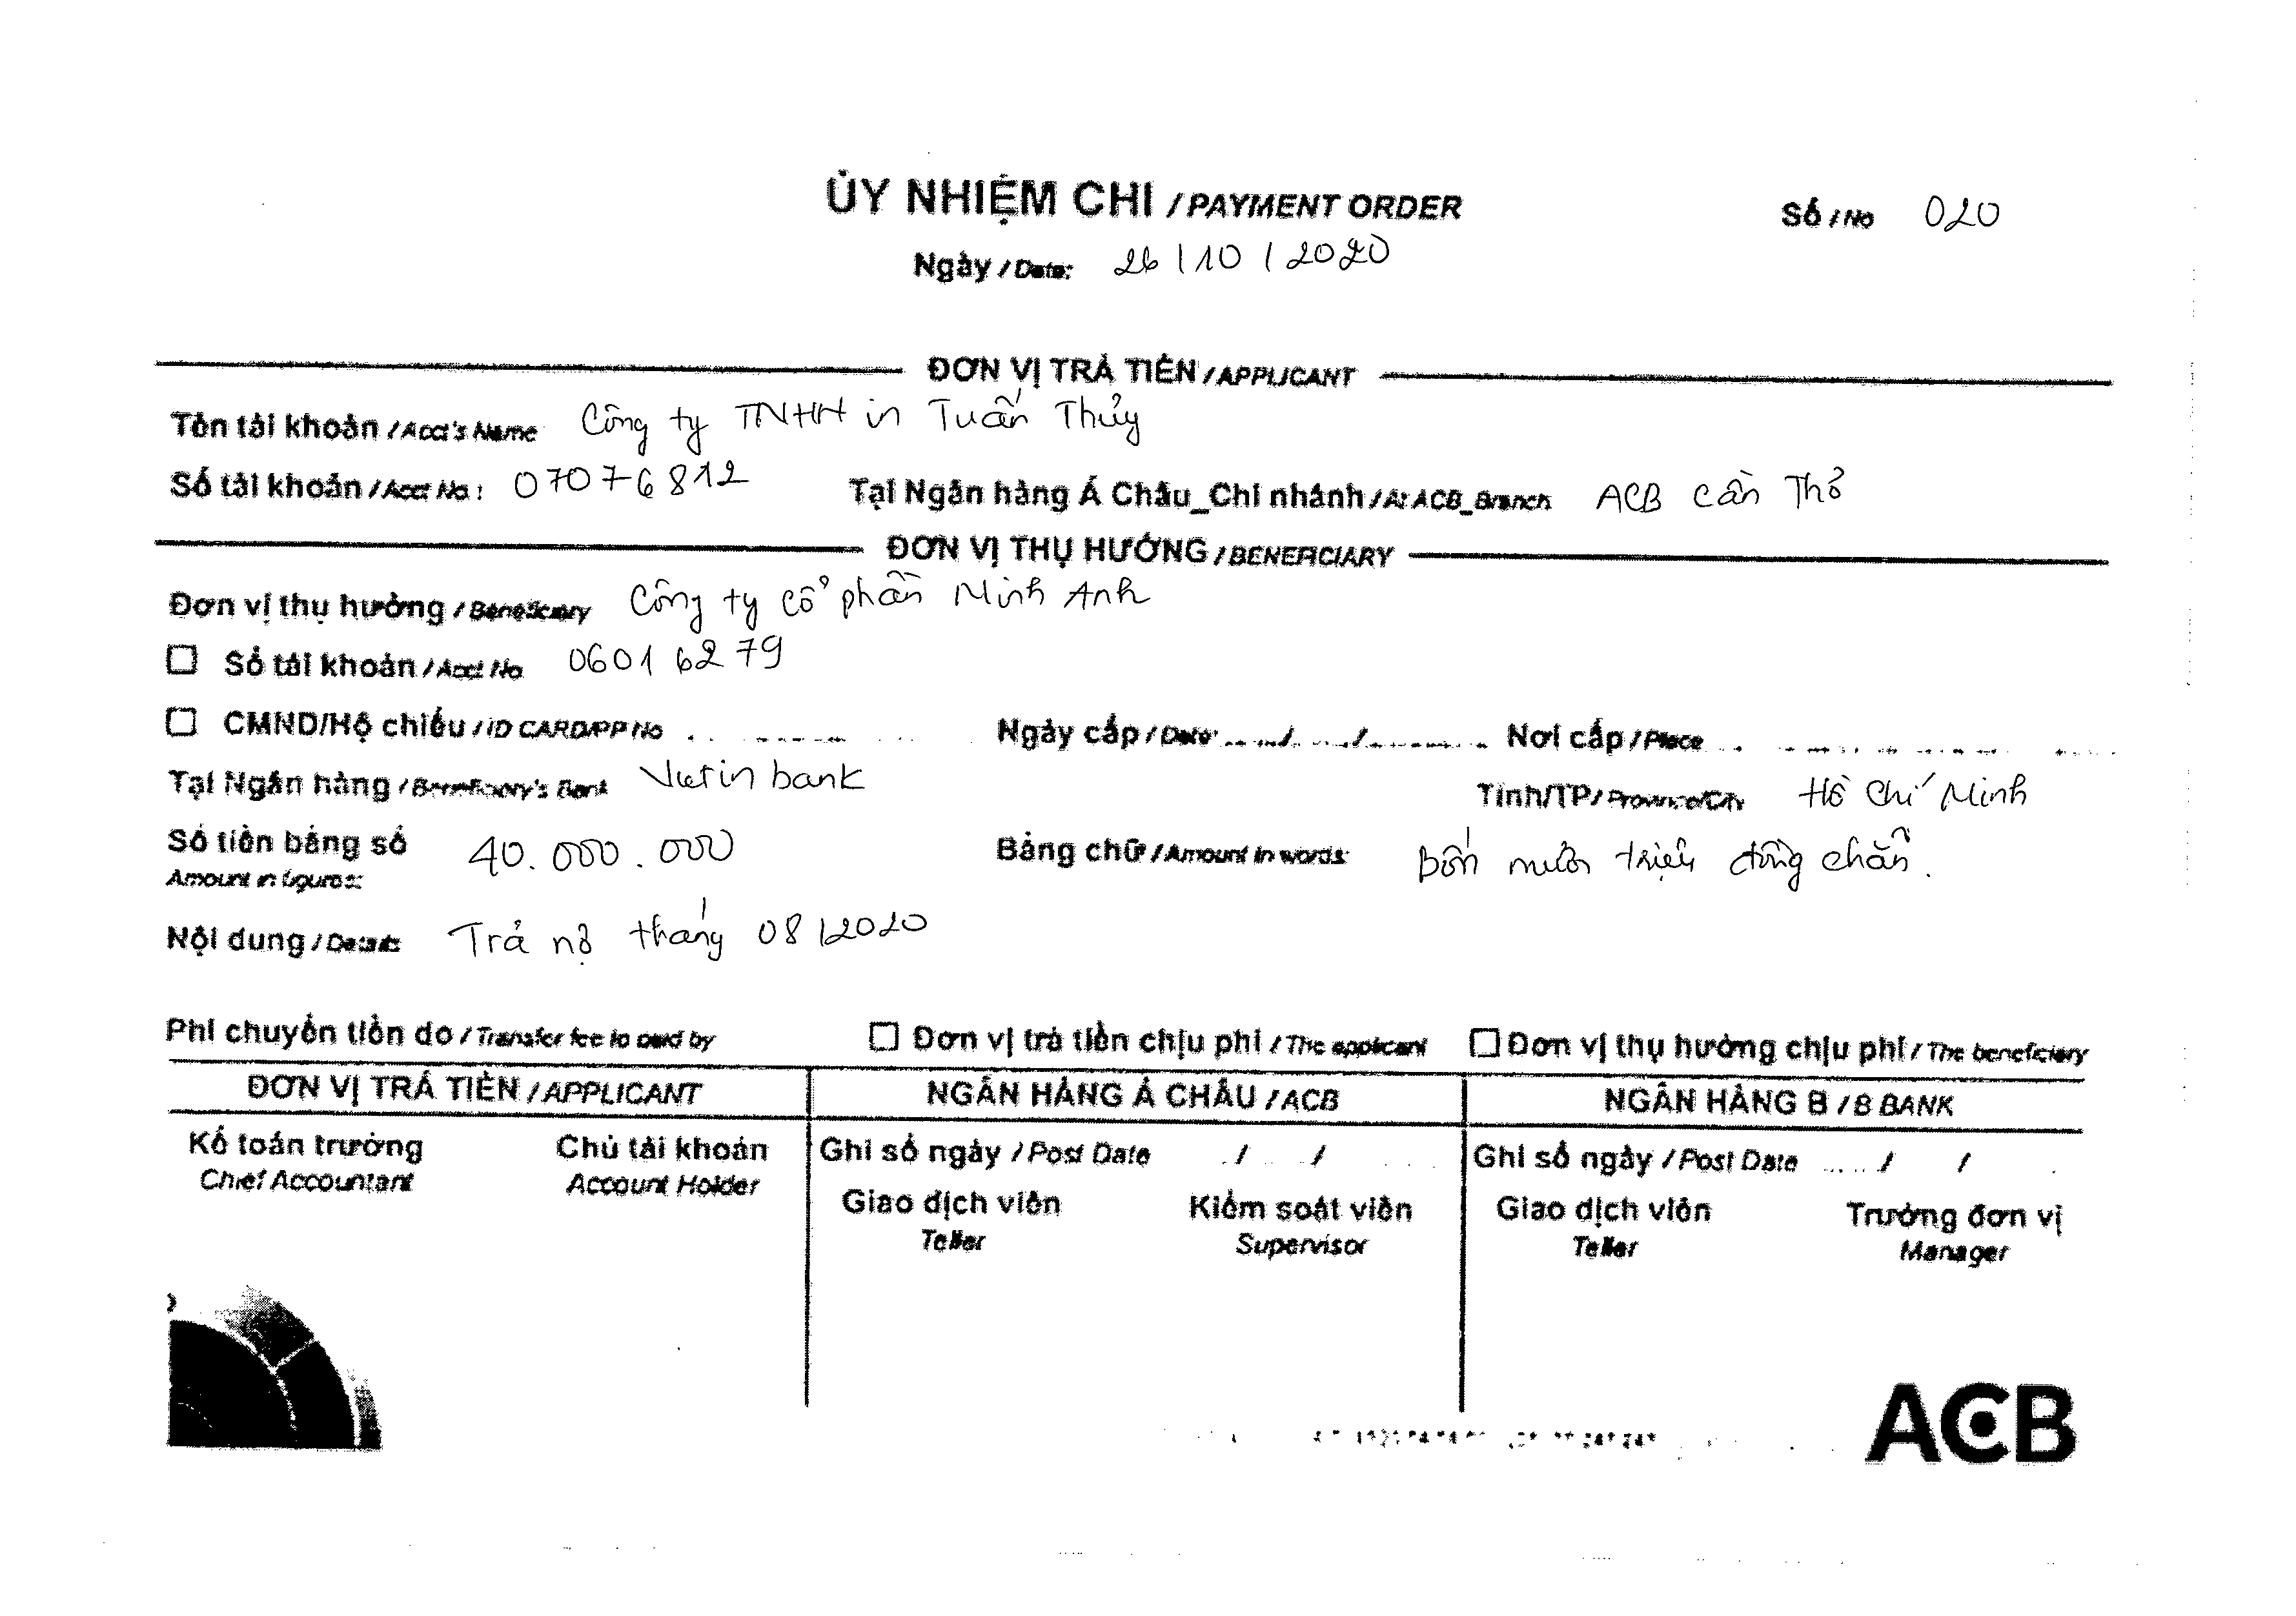 ỦY NHIỆM CHI / PAYMENT ORDER
Số / No 020
Ngày / Date: 26 / 10 / 2020
ĐƠN VỊ TRẢ TIỀN / APPLICANT
Tên tài khoản / Acct's Name Công ty TNHH in Tuấn Thủy
Số tài khoản / Acct No : 07076812 Tại Ngân hàng Á Châu_Chi nhánh / At ACB_Branch ACB Cần Thơ
ĐƠN VỊ THỤ HƯỞNG / BENEFICIARY
Đơn vị thụ hưởng / Beneficiary Công ty cổ phần Minh Anh
Số tài khoản / Acct No 06016279
CMND/Hộ chiếu / ID CARD/PP No Ngày cấp / Date: / / Nơi cấp / Place
Tại Ngân hàng / Beneficiary's Bank Vietin bank Tỉnh/TP / Province/City Hồ Chí Minh
Số tiền bằng số 40.000.000 Bằng chữ / Amount in words: Bốn mươi triệu đồng chẵn.
Amount in figures:
Nội dung / Details Trả nợ tháng 08/2020
Phí chuyển tiền do / Transfer fee to paid by Đơn vị trả tiền chịu phí / The applicant Đơn vị thụ hưởng chịu phí / The beneficiary
ĐƠN VỊ TRẢ TIỀN / APPLICANT NGÂN HÀNG Á CHÂU / ACB NGÂN HÀNG B / B BANK
Kế toán trưởng Chủ tài khoản Ghi sổ ngày / Post Date / / Ghi sổ ngày / Post Date / /
Chief Accountant Account Holder
Giao dịch viên Kiểm soát viên Giao dịch viên Trưởng đơn vị
Teller Supervisor Teller Manager
ACB